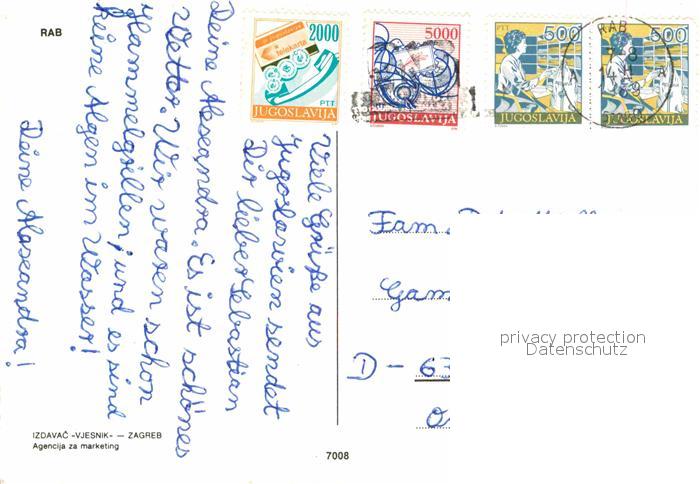 RAB
2000
telekarta
PTT
JUGOSLAVIJA
5000
JUGOSLAVIJA
PTT
500
JUGOSLAVIJA
500
JUGOSLAVIJA
RAB
Viele Grüße aus
Jugoslawien sendet
Dir lieber Sebastian
Deine Alexandra. Es ist schönes
Wetter. Wir waren schon
Hammelgrillen, und es sind
keine Algen im Wasser!
Deine Alexandra!
Fam.
D - 63
privacy protection
Datenschutz
IZDAVAČ «VJESNIK» — ZAGREB
Agencija za marketing
7008